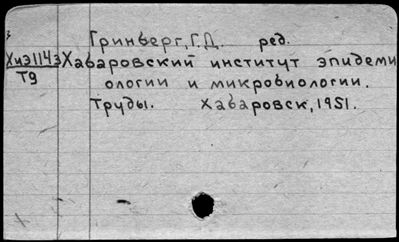 Гринберг, Г.Д. ред.
Хиэ1143 Хабаровский институт эпидеми
Т9 ологии и микробиологии.
Труды. Хабаровск, 1951.